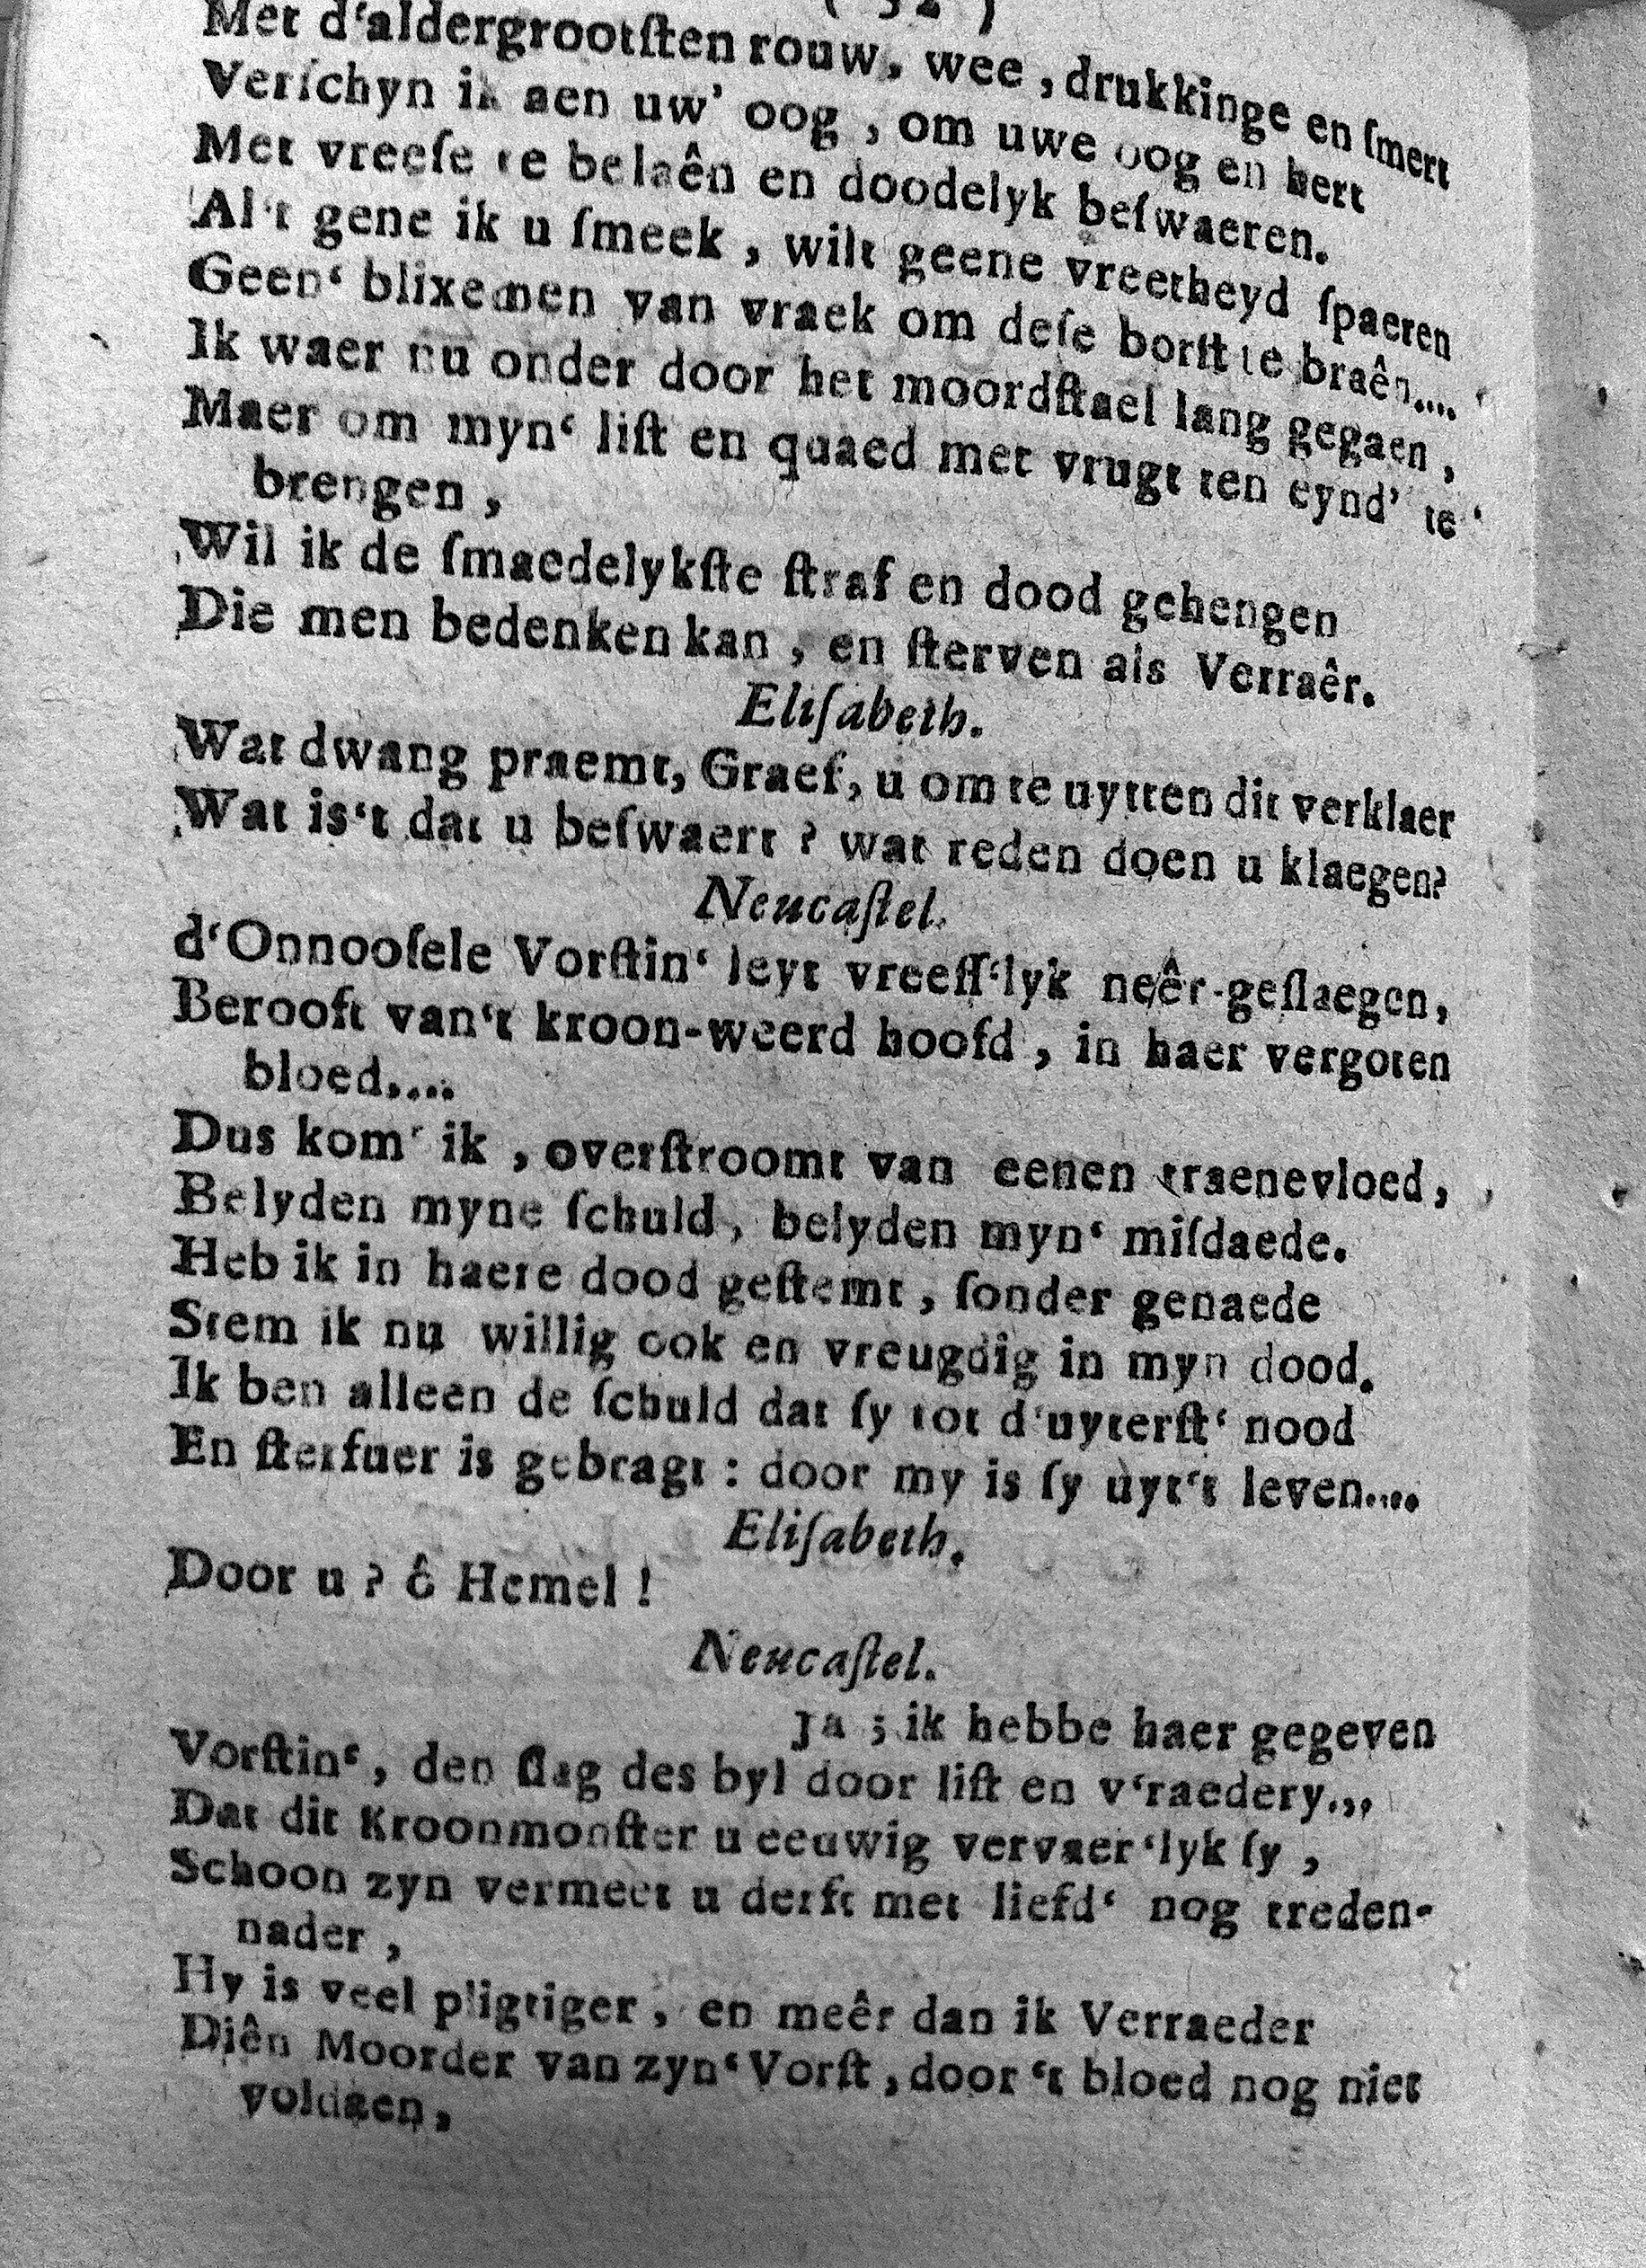 Met d‘aldergrootſten rouw, wee, drukkinge en ſmert
Verſchyn ik aen uw’ oog, om uwe oog en hert
Met vreeſe te belaên en doodelyk beſwaeren.
Al‘t gene ik u ſmeek, wilt geene vreetheyd ſpaeren
Geen‘ blixemen van vraek om deſe borſt te braên....
Ik waer nu onder door het moordſtael lang gegaen,
Maer om myn‘ liſt en quaed met vrugt ten eynd’ te
brengen,
Wil ik de ſmaedelykſte ſtraf en dood gehengen
Die men bedenken kan, en ſterven als Verraêr.
Eliſabeth.
Wat dwang praemt, Graef, u om te uytten dit verklaer
Wat is‘t dat u beſwaert? wat reden doen u klaegen?
Neucaſtel.
d‘Onnooſele Vorſtin‘ leyt vreeſſ‘lyk neêr-geſlaegen,
Berooft van‘t kroon-weerd hoofd, in haer vergoten
bloed....
Dus kom‘ ik, overſtroomt van eenen traenevloed,
Belyden myne ſchuld, belyden myn‘ miſdaede.
Heb ik in haere dood geſtemt, ſonder genaede
Stem ik nu willig ook en vreugdig in myn dood.
Ik ben alleen de ſchuld dat ſy tot d‘uyterſt‘ nood
En ſterfuer is gebragt: door my is ſy uyt‘t leven....
Eliſabeth.
Door u? ô Hemel!
Neucaſtel.
Ja; ik hebbe haer gegeven
Vorſtin‘, den ſlag des byl door liſt en v‘raedery...
Dat dit Kroonmonſter u eeuwig vervaer‘lyk ſy,
Schoon zyn vermeet u derft met liefd‘ nog treden-
nader,
Hy is veel pligtiger, en meêr dan ik Verraeder
Diên Moorder van zyn‘ Vorſt, door ‘t bloed nog niet
voldaen,